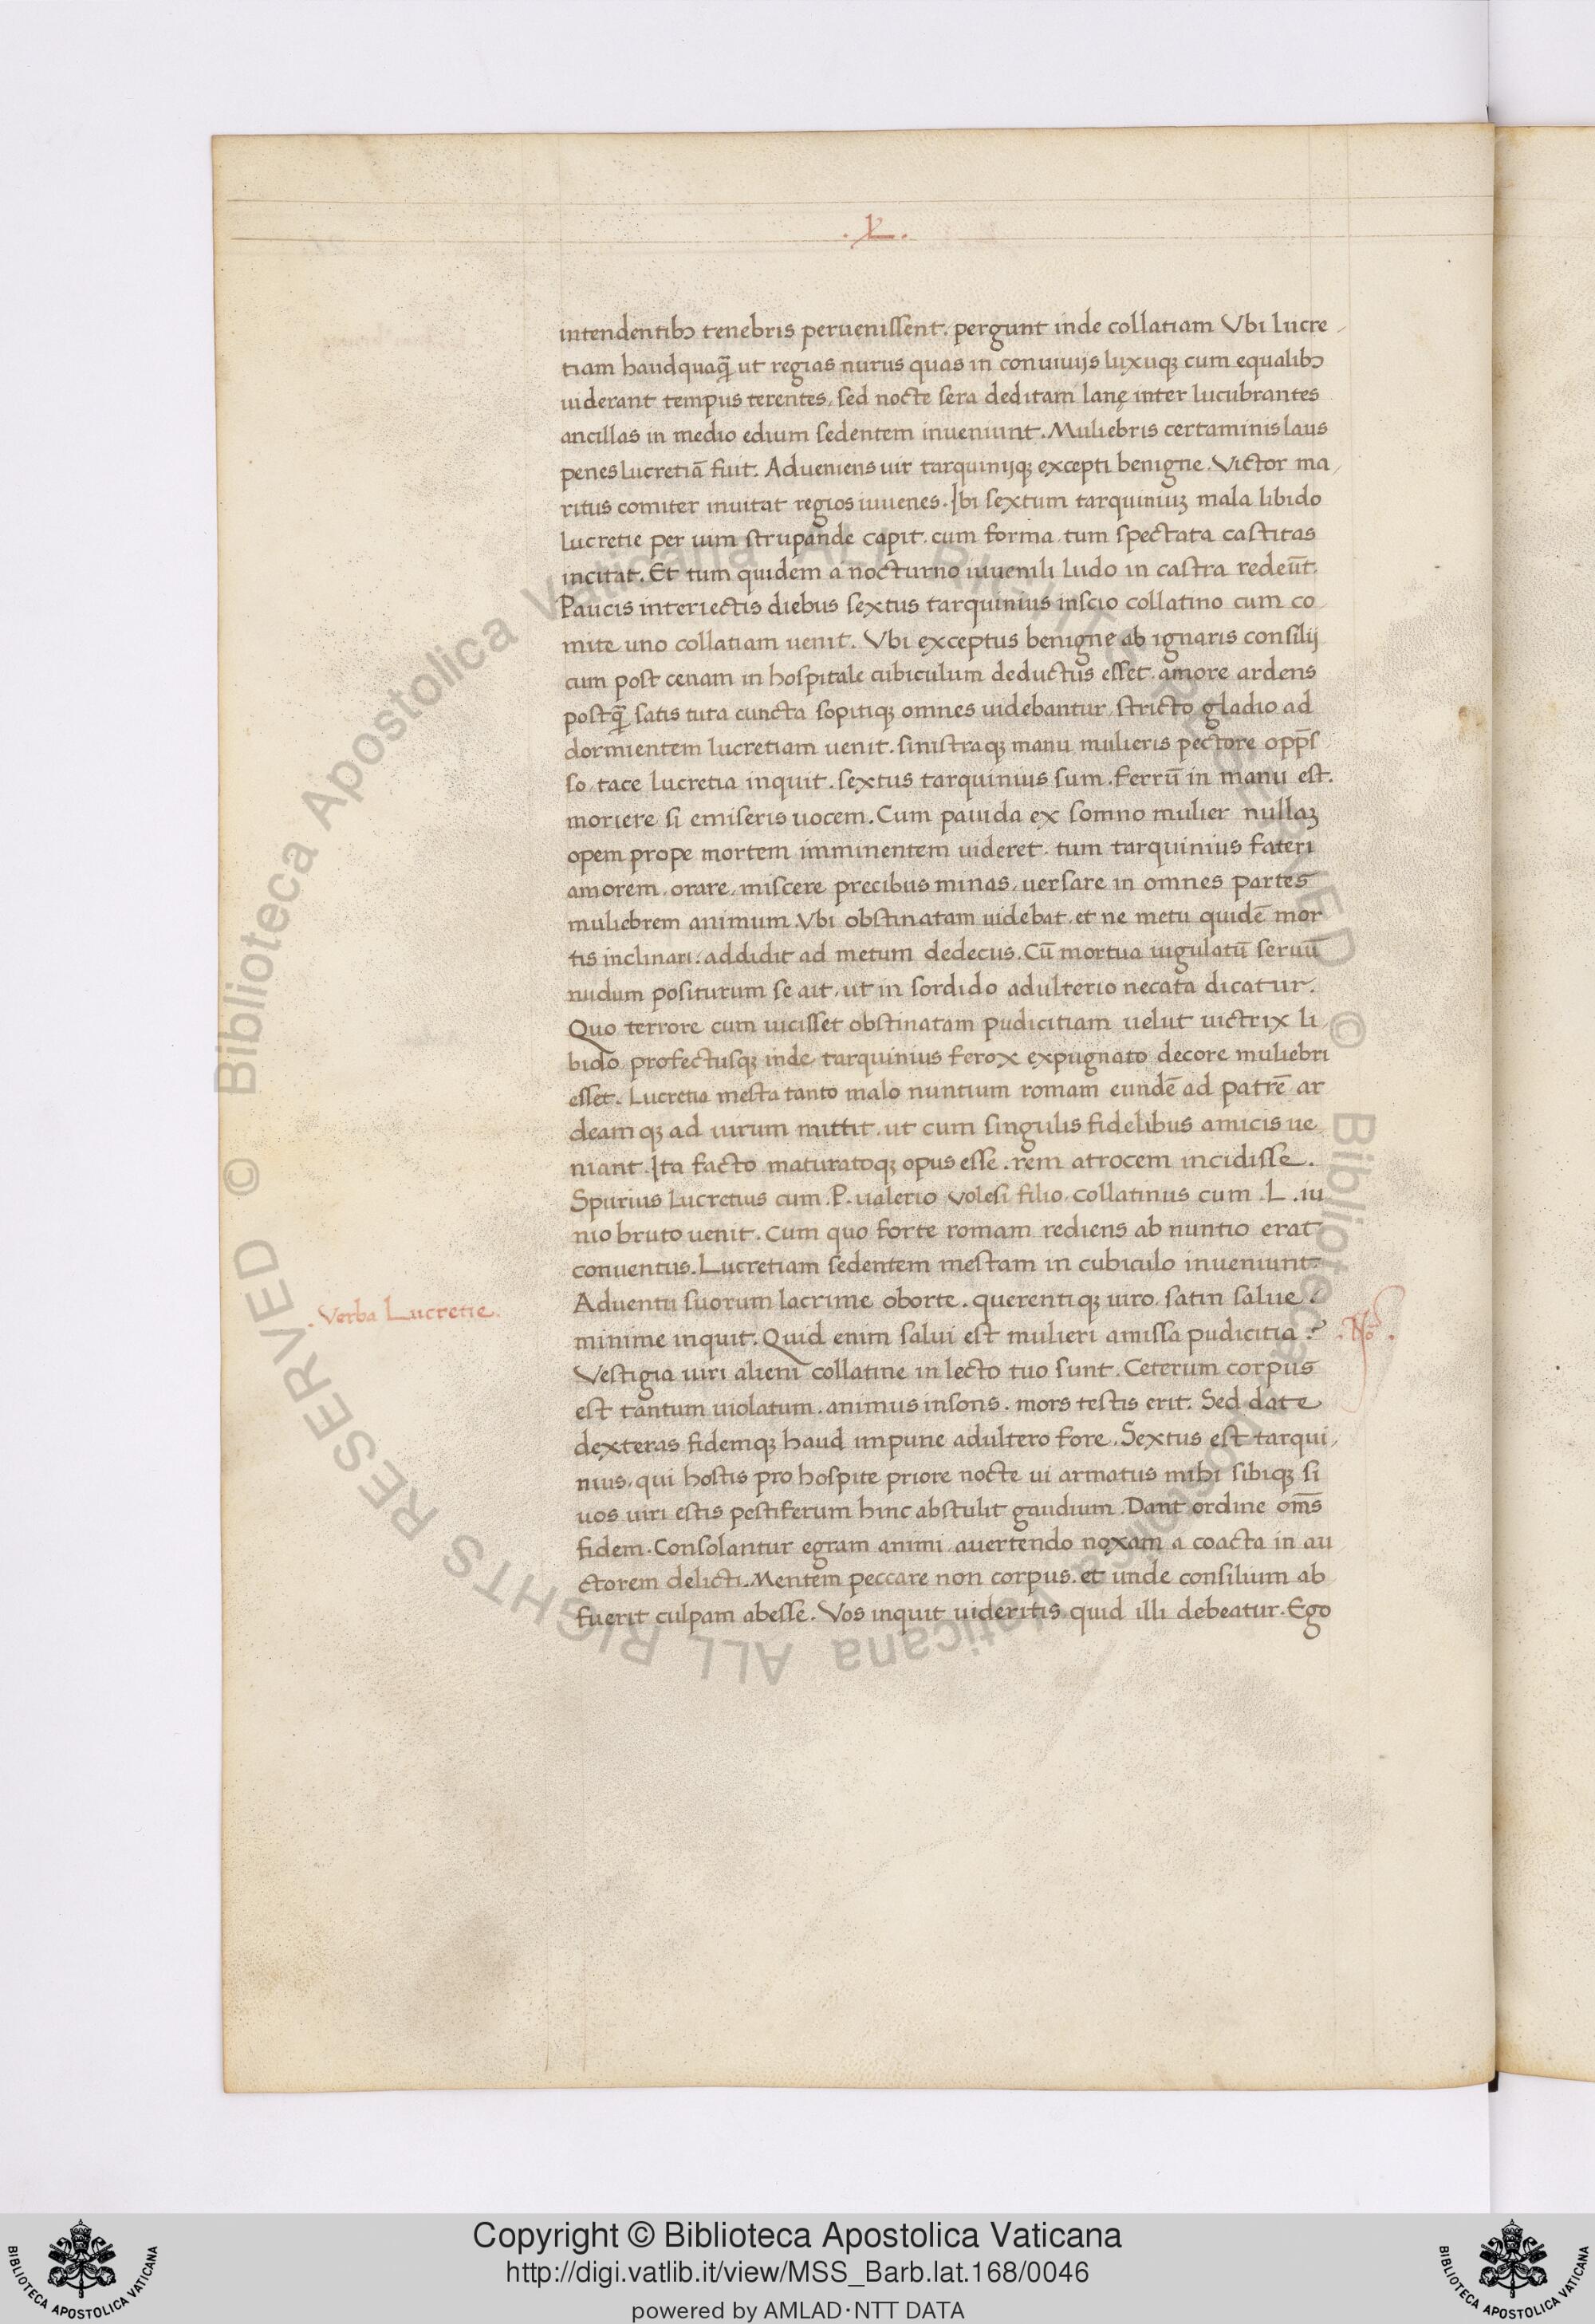 .L.
intendentibꝫ tenebris peruenissent. pergunt inde collatiam Vbi lucre
tiam haudquaq̃ ut regias nurus quas in conuiuijs luxuqꝫ cum equalibꝫ
uiderant tempus terentes, sed nocte sera deditam lanę inter lucubrantes
ancillas in medio edium sedentem inueniunt. Muliebris certaminis laus
penes lucretiã fuit. Adueniens uir tarquinijqꝫ excepti benigne. Victor ma
ritus comiter inuitat regios iuuenes. Ibi sextum tarquiniuꝫ mala libido
lucretie per uim strupande capit. cum forma tum spectata castitas
incitat. Et tum quidem a nocturno iuuenili ludo in castra redeūt.
Paucis interiectis diebus sextus tarquinius inscio collatino cum co
mite uno collatiam uenit. Vbi exceptus benigne ab ignaris consilij
cum post cenam in hospitale cubiculum deductus esset, amore ardens
postq̃ satis tuta cuncta sopitiqꝫ omnes uidebantur, stricto gladio ad
dormientem lucretiam uenit. sinistraqꝫ manu mulieris pectore opp̄s
so, tace lucretia inquit. sextus tarquinius sum. ferrū in manu est.
moriere si emiseris uocem. Cum pauida ex somno mulier nullaꝫ
opem prope mortem imminentem uideret. tum tarquinius fateri
amorem, orare, miscere precibus minas, uersare in omnes partes
muliebrem animum. Vbi obstinatam uidebat. et ne metu quidē mor
tis inclinari: addidit ad metum dedecus. Cū mortua iugulatū seruū
nudum positurum se ait, ut in sordido adulterio necata dicatur.
Quo terrore cum uicisset obstinatam pudicitiam uelut uictrix li
bido, profectusqꝫ inde tarquinius ferox expugnato decore muliebri
esset. Lucretia mesta tanto malo nuntium romam eundē ad patrē ar
deamqꝫ ad uirum mittit. ut cum singulis fidelibus amicis ue
niant. Ita facto maturatoqꝫ opus esse. rem atrocem incidisse.
Spurius Lucretius cum .P. ualerio volesi filio. collatinus cum .L. iu
nio bruto uenit. Cum quo forte romam rediens ab nuntio erat
conuentus. Lucretiam sedentem mestam in cubiculo inueniunt.
Aduentu suorum lacrime oborte. querentiqꝫ uiro. satin salue?
.Verba Lucretie.
minime inquit. Quid enim salui est mulieri amissa pudicitia?
.No.
Vestigia uiri alieni collatine in lecto tuo sunt. Ceterum corpus
est tantum uiolatum. animus insons. mors testis erit. Sed date
dexteras fidemqꝫ haud impune adultero fore. Sextus est tarqui
nius, qui hostis pro hospite priore nocte ui armatus mihi sibiqꝫ si
uos uiri estis pestiferum hinc abstulit gaudium. Dant ordine om̄s
fidem. Consolantur egram animi auertendo noxam a coacta in au
ctorem delicti. Mentem peccare non corpus. et unde consilium ab
fuerit culpam abesse. Vos inquit uideritis quid illi debeatur. Ego
© Biblioteca Apostolica Vaticana ALL RIGHTS RESERVED © Biblioteca Apostolica Vaticana ALL RIGHTS RESERVED
Copyright © Biblioteca Apostolica Vaticana
http://digi.vatlib.it/view/MSS_Barb.lat.168/0046
powered by AMLAD·NTT DATA
BIBLIOTECA APOSTOLICA VATICANA
BIBLIOTECA APOSTOLICA VATICANA